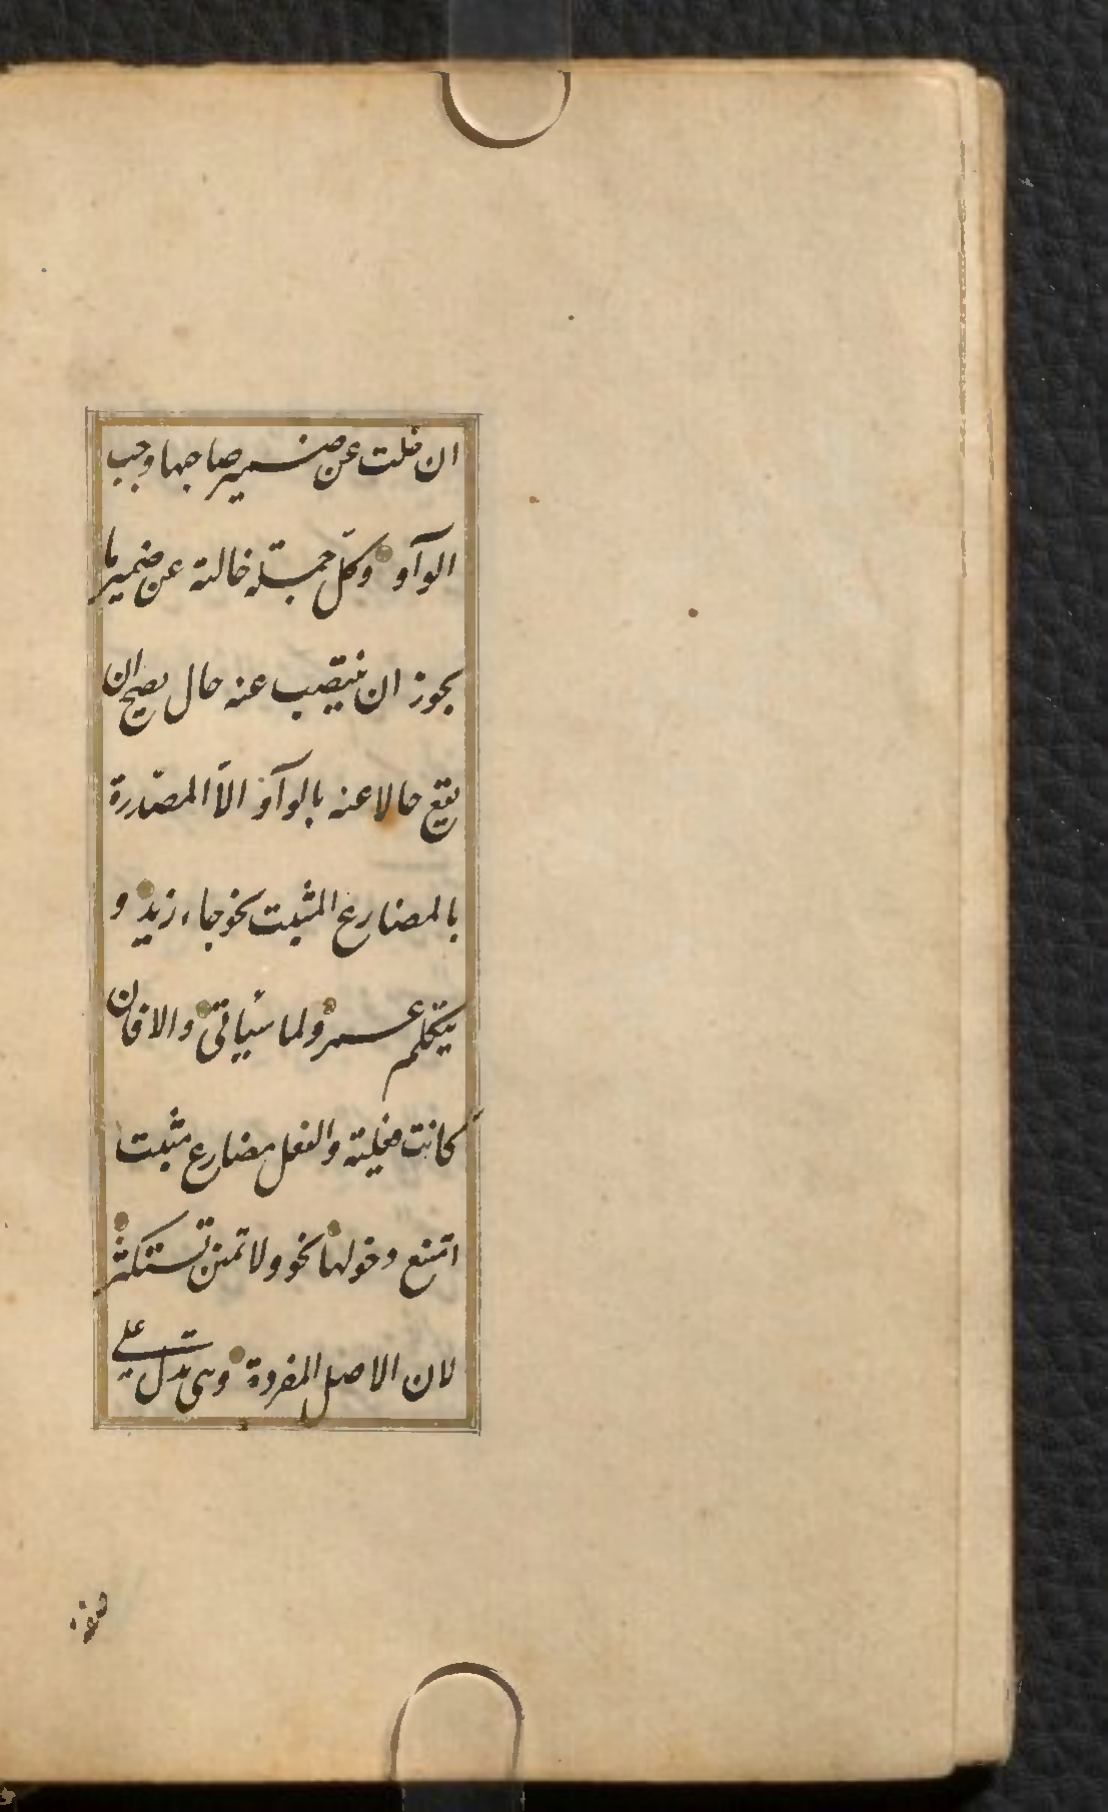 ان خلت عن ضمير صاحبها وجب
الواو وكل جملة خالية عن ضمير ما
يجوز ان ينتصب عنه حال يصح ان
يقع حالا عنه بالواو الّا المصدّرة
بالمضارع المثبت نحو جاء زيد و
يتكلم عمرو لما سيأتي والا فان
كانت فعلية والفعل مضارع مثبت
امتنع دخولها نحو ولا تمنن تستكثر
لان الاصل المفردة وهي تدل على
صفة